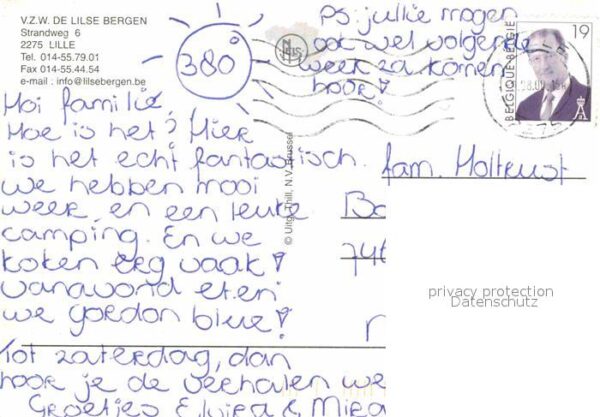 V.Z.W. DE LILSE BERGEN
Strandweg 6
2275 LILLE
Tel. 014-55.79.01
Fax 014-55.44.54
e-mail : info@lilsebergen.be
38°
PS: jullie mogen
ook wel volgende
week za komen
hoor!
19
BELGIQUE-BELGIË
Hoi familie
Hoe is het? Hier
is het echt fantastisch.
we hebben mooi
weer en een leuke
camping. En we
koken erg vaak!
vanavond eten
we gordon blue!
Tot zaterdag, dan
hoor je de verhalen we
Groetjes Elvira & Mira
© Uitg. Thill, N.V. Brussel
fam. Holtrust
Ba
746
privacy protection
Datenschutz